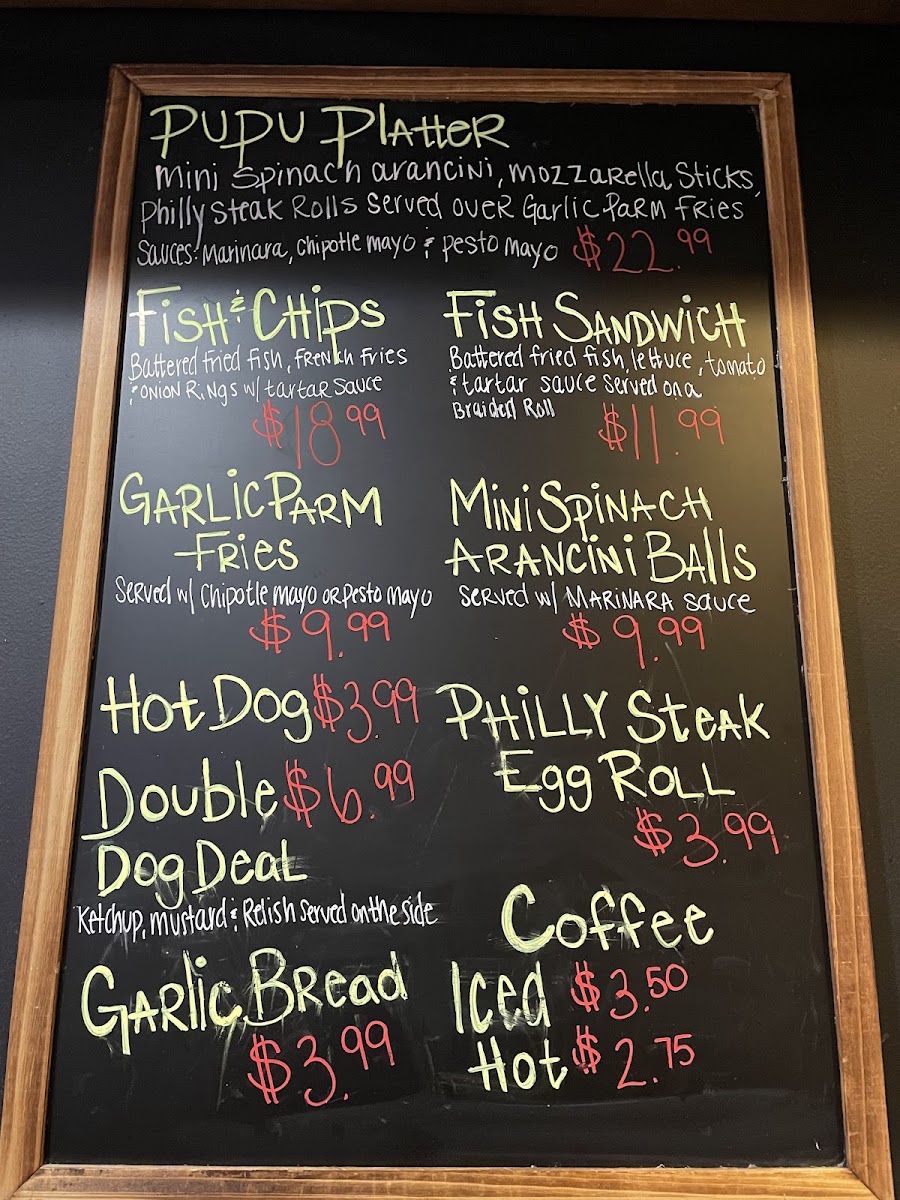 PUPU Platter
Mini Spinach arancini, Mozzarella Sticks,
Philly Steak Rolls Served over Garlic Parm Fries
Sauces: Marinara, Chipotle mayo & pesto mayo $22.99
Fish & Chips
Battered fried fish, French fries
& Onion Rings w/ tartar sauce
$18.99
Fish Sandwich
Battered fried fish, lettuce, tomato
& tartar sauce served on a
Braided Roll
$11.99
Garlic Parm
Fries
Served w/ Chipotle mayo or pesto mayo
$9.99
Mini Spinach
Arancini Balls
Served w/ Marinara sauce
$9.99
Hot Dog $3.99
Double $6.99
Dog Deal
Ketchup, mustard & Relish served on the side
Philly Steak
Egg Roll
$3.99
Garlic Bread
$3.99
Coffee
Iced $3.50
Hot $2.75